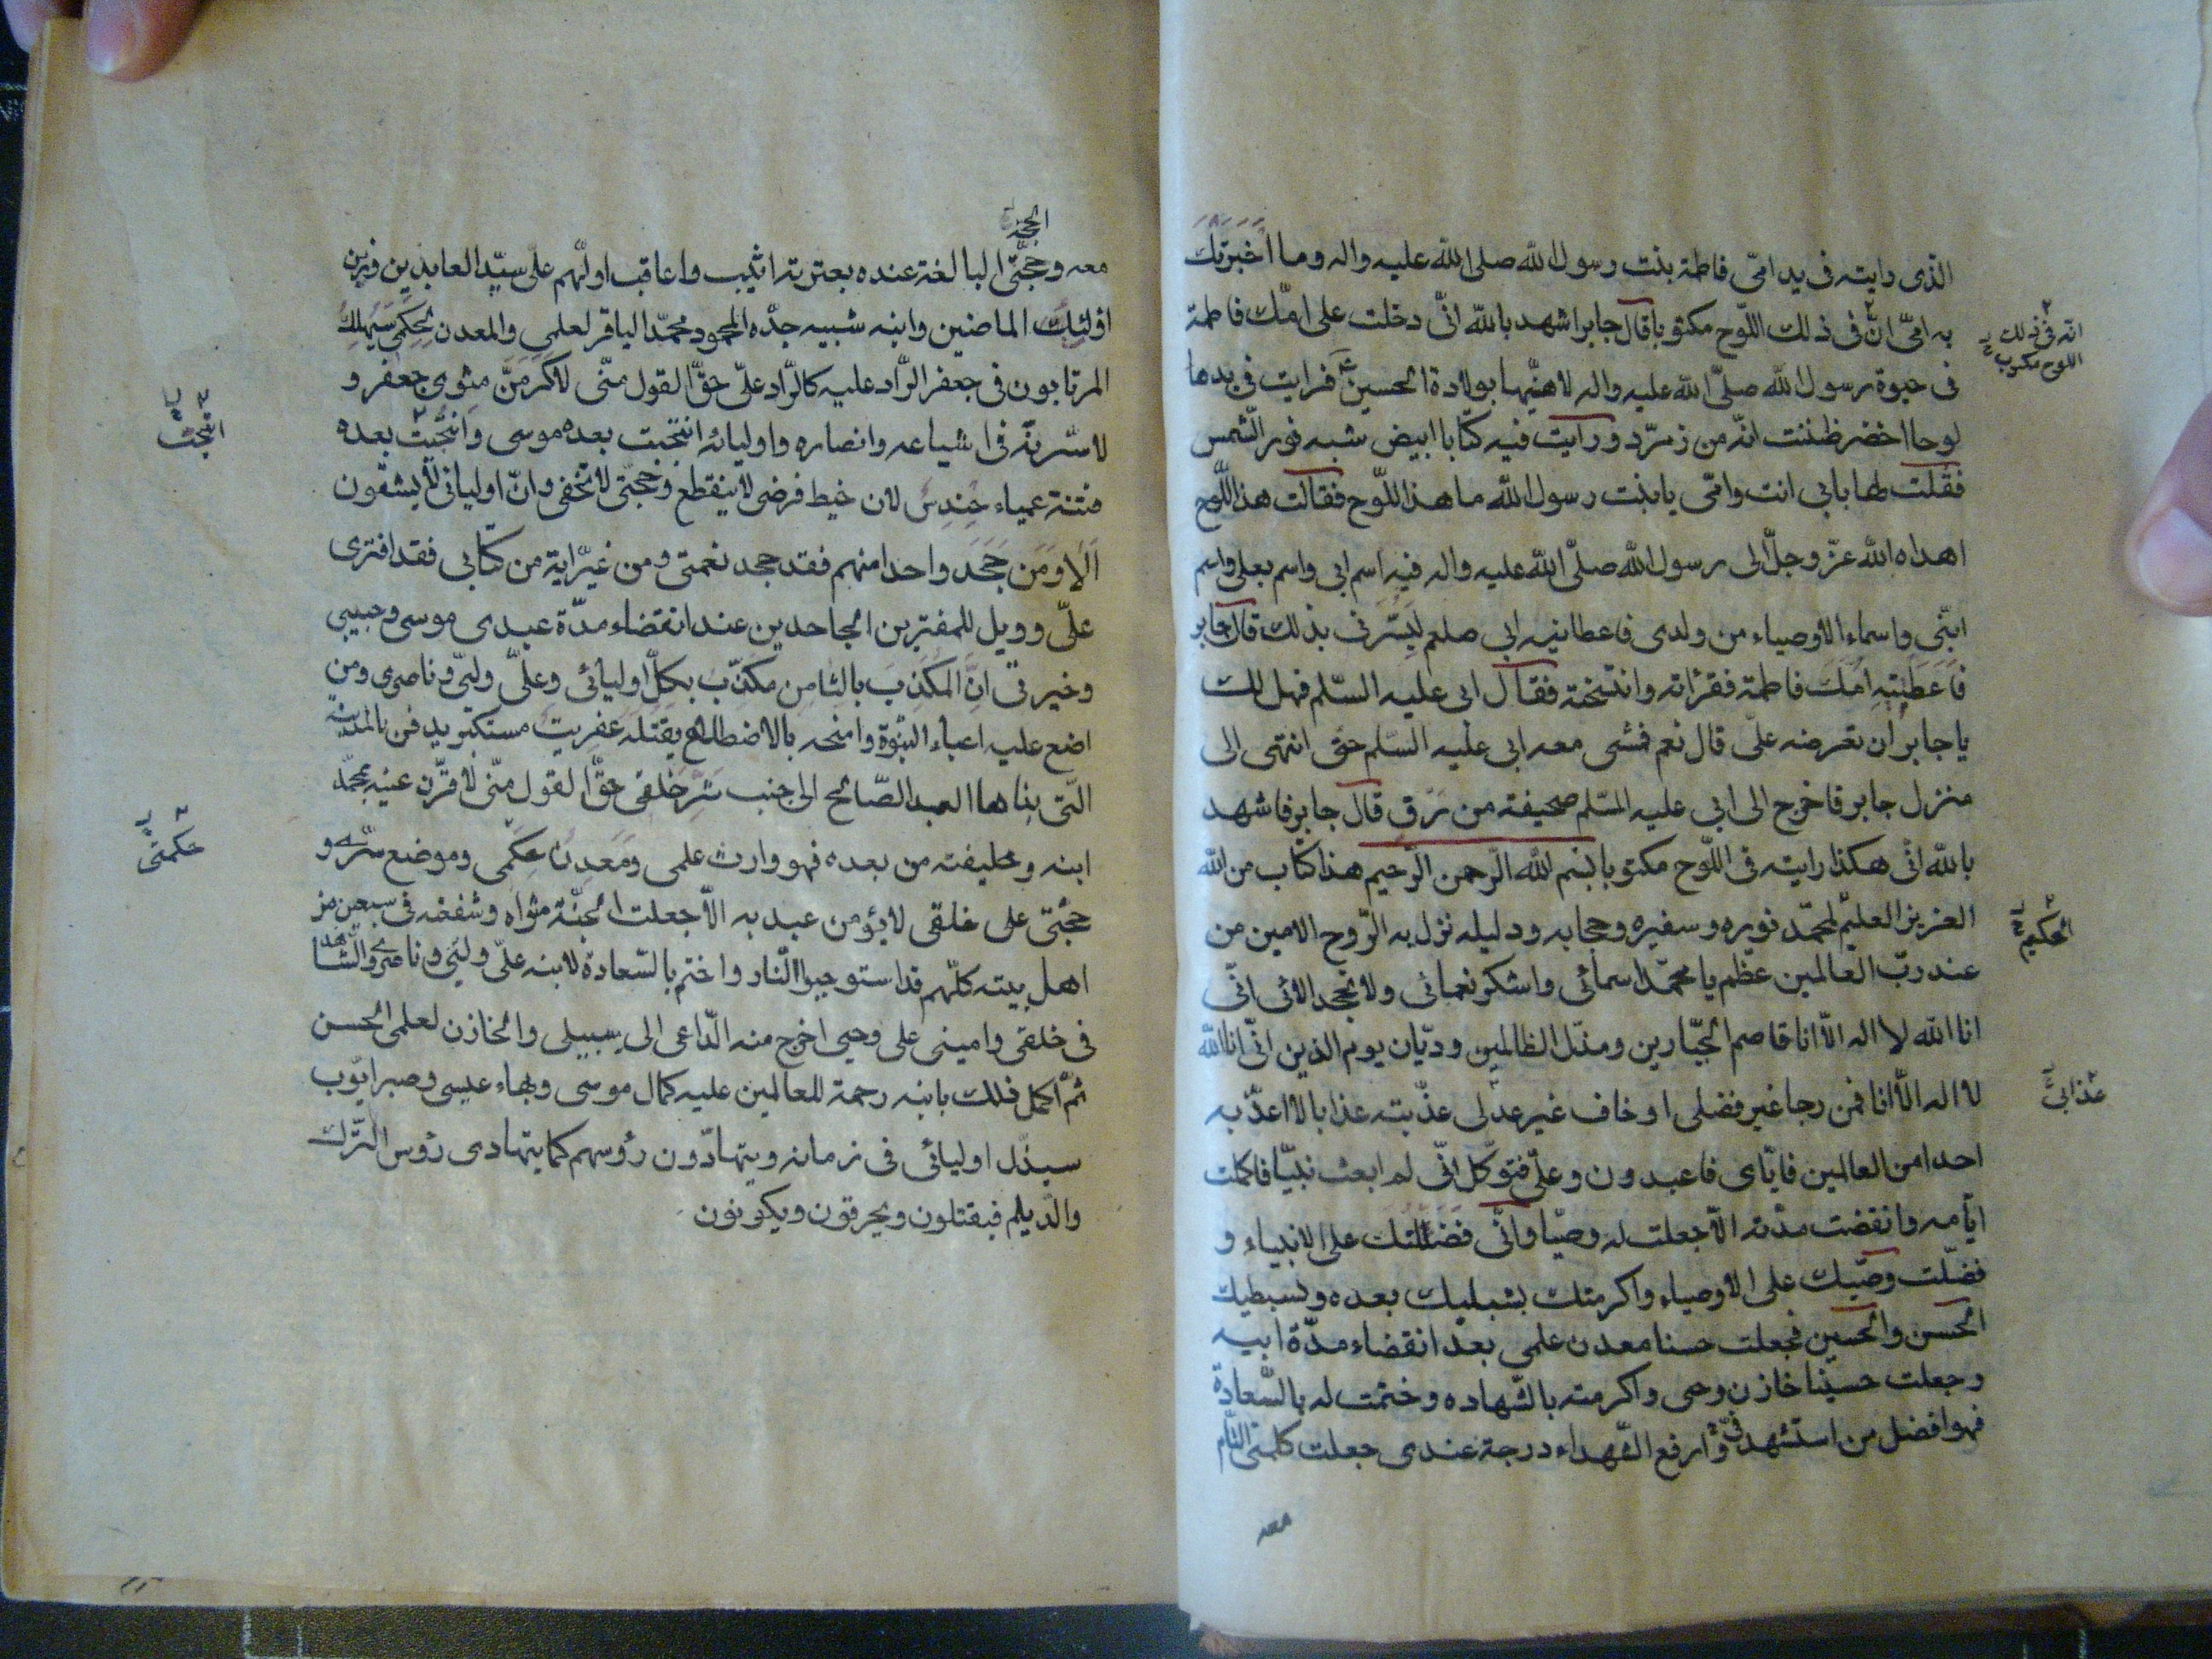 الذى رايته فى يد امّى فاطمة بنت رسول الله صلى الله عليه واله وما اخبرتك
به امّى انّ فى ذلك اللّوح مكتوبا قال جابر اشهد بالله انّى دخلت على امّك فاطمة
انّه فى ذلك
اللوح مكتوب
فى حيوة رسول الله صلّى الله عليه واله لاهنّيها بولادة الحسين ع فرايت فى يدها
لوحا اخضر ظننت انّه من زمرّد ورايت فيه كتابا ابيض شبه نور الشمس
فقلت لها بابى انت وامّى يا بنت رسول الله ما هذا اللّوح فقالت هذا اللّوح
اهداه الله عزّ وجلّ الى رسول الله صلّى الله عليه واله فيه اسم ابى واسم بعلى واسم
ابنّى واسماء الاوصياء من ولدى فاعطانيه ابى صلعم ليسّرنى بذلك قال جابر
فاعطتنيه امّك فاطمة فقرأته وانتسخته فقال ابى عليه السّلم فهل لك
يا جابر ان تعرضه علىّ قال نعم فمشى معه ابى عليه السّلم حتى انتهى الى
منزل جابر فاخرج الى ابى عليه السّلم صحيفة من رق قال جابر فاشهد
بالله انّى هكذا رايته فى اللّوح مكتوبا بسم الله الرّحمن الرّحيم هذا كتاب من الله
العزيز العليم لمحمّد نوره وسفيره وحجابه ودليله نزل به الرّوح الامين من
الحكيم
عند ربّ العالمين عظّم يا محمّد اسمائى واشكر نعمائى ولا تجحد الائى انّى
انا الله لا اله الّا انا قاصم الجبّارين ومذلّ الظالمين وديّان يوم الدين انّى انا الله
لا اله الّا انا فمن رجا غير فضلى او خاف غير عدلى عذّبته عذابا لا اعذّبه
عذابى
احدا من العالمين فايّاى فاعبدون وعلىّ فتوكّل انّى لم ابعث نبيّا فاكملت
ايّامه وانقضت مدّته الّا جعلت له وصيّا وانّى فضّلتك على الانبياء و
فضّلت وصيّك على الاوصياء واكرمتك بشبليك بعده وبسبطيك
الحسن والحسين فجعلت حسنا معدن علمى بعد انقضاء مدّة ابيه
وجعلت حسينا خازن وحى واكرمته بالشّهاده وختمت له بالسّعادة
فهو افضل من استشهد فىّ وارفع الشّهداء درجة عندى جعلت كلمتى التّام
معه
معه وحجّتى البالغة عنده بعترته اثيب واعاقب اولّهم علىّ سيّد العابدين وزين
اوليائك الماضين وابنه شبيه جدّه المحمود محمّد الباقر لعلمى والمعدن لحكمى سيهلك
المرتابون فى جعفر الرّاد عليه كالرّاد علىّ حقّ القول منّى لاكرمنّ مثوى جعفر و
لاسّرنّه فى اشياعه وانصاره واوليائه انتجبت بعده موسى وانتجبت بعده
انتجبت
فتنة عمياء حندس لان خيط فرضى لا ينقطع وحجّتى لا تخفى وانّ اوليائى لا يشقون
الا ومن جحد واحدا منهم فقد جحد نعمتى ومن غيّر اية من كتابى فقد افترى
علىّ وويل للمفترين الجاحدين عند انقضاء مدّة عبدى موسى وحبيبى
وخيرتى انّ المكذب بالثامن مكذّب بكلّ اوليائى وعلىّ وليّى وناصرى ومن
اضع عليه اعباء النبّوة وامنحه بالاضطلاع يقتله عفريت مستكبر يدفن بالمدينة
التّى بناها العبد الصّالح الى جنب شرّ خلقى حقّ القول منّى لاقرّن عينه بمحمّد
ابنه وخليفته من بعده فهو وارث علمى ومعدن حكمى وموضع سرّى و
حكمتى
حجّتى على خلقى لا يؤمن عبد به الّا جعلت الجنّة مثواه وشفعته فى سبعين من
اهل بيته كلّهم قد استوجبوا النّار واختم بالسّعادة لابنه علىّ وليّى وناصرى والشّاهد
فى خلقى وامينى على وحيى اخرج منه الدّاعى الى سبيلى والخازن لعلمى الحسن
ثمّ اكمل ذلك بابنه رحمة للعالمين عليه كمال موسى وبهاء عيسى وصبر ايّوب
سيذّل اوليائى فى زمانه ويتهادّون رؤسهم كما يتهادى رؤس التّرك
والدّيلم فيقتلون ويحرقون ويكونون